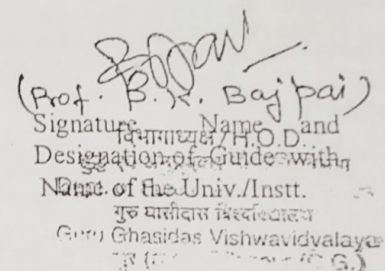 (Prof. B. K. Bajpai)
Signature Name and
विभागाध्यक्ष / H.O.D.
Designation of Guide with
Name of the Univ./Instt.
गुरु घासीदास विश्वविद्यालय
Guru Ghasidas Vishwavidyalaya
G.)